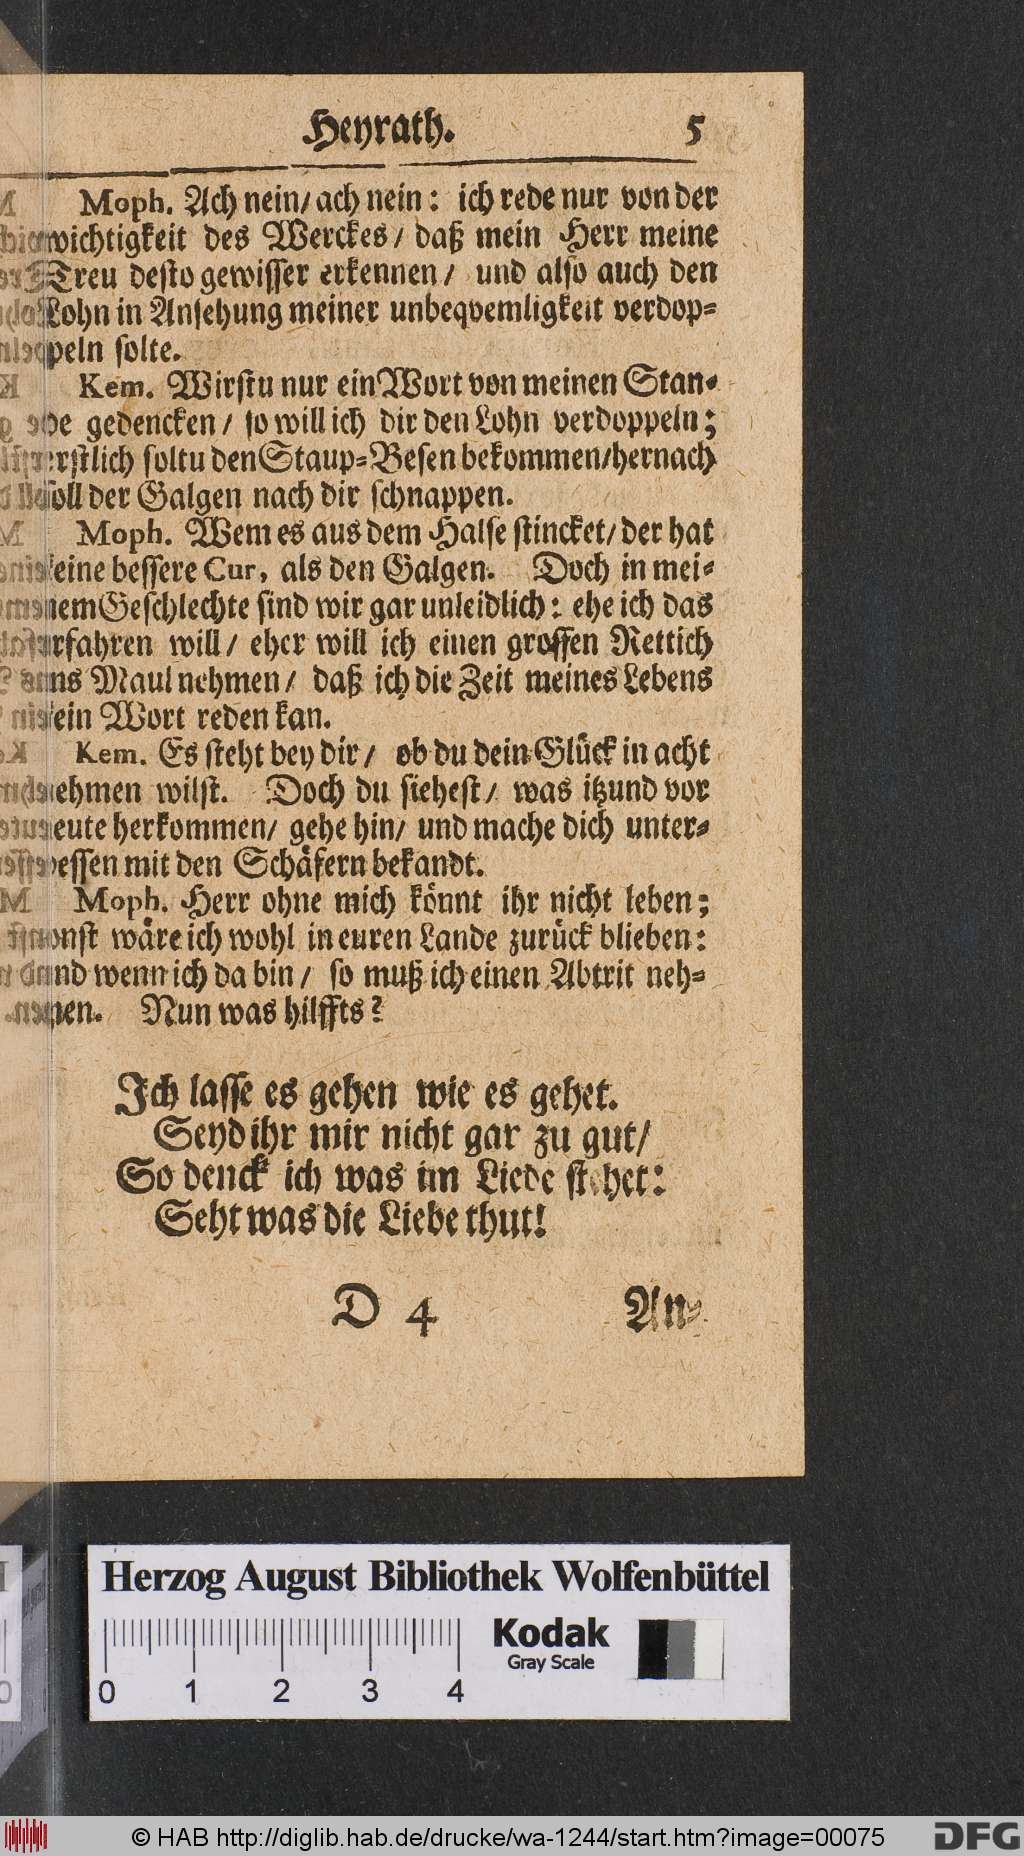 Heyrath. 5
Moph. Ach nein/ ach nein: ich rede nur von der
wichtigkeit des Werckes/ daß mein Herr meine
Treu desto gewisser erkennen/ und also auch den
Lohn in Ansehung meiner unbeqvemligkeit verdop-
peln solte.
Kem. Wirstu nur ein Wort von meinen Stan-
de gedencken/ so will ich dir den Lohn verdoppeln;
erstlich soltu den Staup-Besen bekommen/ hernach
soll der Galgen nach dir schnappen.
Moph. Wem es aus dem Halse stincket/ der hat
keine bessere Cur, als den Galgen. Doch in mei-
nem Geschlechte sind wir gar unleidlich: ehe ich das
erfahren will/ eher will ich einen grossen Rettich
ins Maul nehmen/ daß ich die Zeit meines Lebens
kein Wort reden kan.
Kem. Es steht bey dir/ ob du dein Glück in acht
nehmen wilst. Doch du siehest/ was itzund vor
Leute herkommen/ gehe hin/ und mache dich unter-
dessen mit den Schäfern bekandt.
Moph. Herr ohne mich könnt ihr nicht leben;
sonst wäre ich wohl in euren Lande zurück blieben:
und wenn ich da bin/ so muß ich einen Abtrit neh-
men. Nun was hilffts?
Ich lasse es gehen wie es gehet.
Seyd ihr mir nicht gar zu gut/
So denck ich was im Liede stehet:
Seht was die Liebe thut!
D 4 An-
Herzog August Bibliothek Wolfenbüttel
Kodak
Gray Scale
0 1 2 3 4
© HAB http://diglib.hab.de/drucke/wa-1244/start.htm?image=00075 DFG